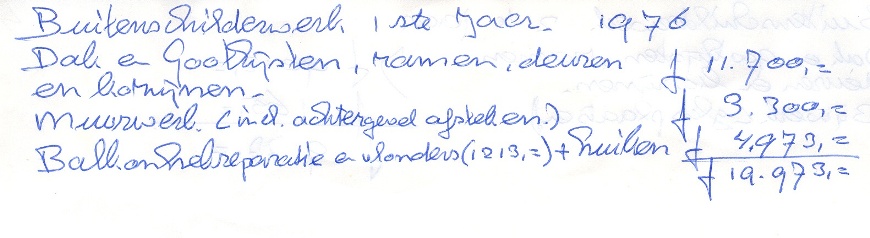 Buitenschilderwerk 1ste Jaar. 1976
Dak en Gootlijsten, ramen, deuren f 11.700,=
en kozijnen.
Muurwerk. (incl. achtergevel afsteken.) f 3.300,=
Balkonhekreparatie en vlonders (1213,=) + luiken f 4.973,=
f 19.973,=